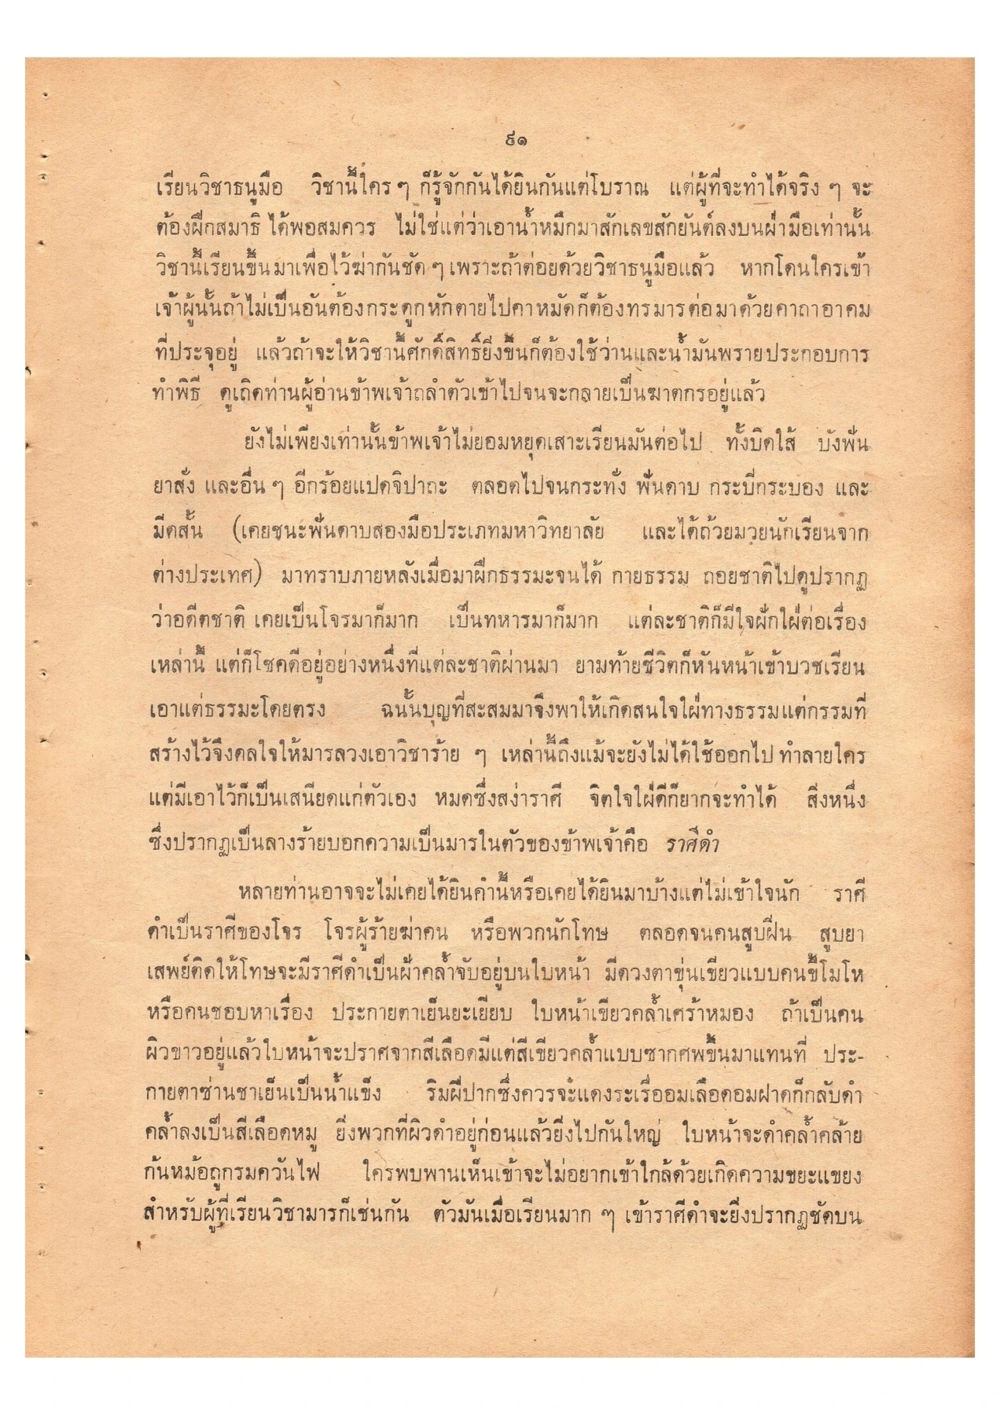 ๙๑
เรียนวิชาธนูมือ วิชานี้ใคร ๆ ก็รู้จักกันได้ยินกันแต่โบราณ แต่ผู้ที่จะทำได้จริง ๆ จะ
ต้องฝึกสมาธิ ได้พอสมควร ไม่ใช่แต่ว่าเอาน้ำหมึกมาสักเลขสักยันต์ลงบนฝ่ามือเท่านั้น
วิชานี้เรียนขึ้นมาเพื่อไว้ฆ่ากันชัด ๆ เพราะถ้าต่อยด้วยวิชาธนูมือแล้ว หากโดนใครเข้า
เจ้าผู้นั้นถ้าไม่เป็นอันต้องกระดูกหักตายไปคาหมัดก็ต้องทรมารต่อมาด้วยคาถาอาคม
ที่ประจุอยู่ แล้วถ้าจะให้วิชานี้ศักดิ์สิทธิ์ยิ่งขึ้นก็ต้องใช้ว่านและน้ำมันพรายประกอบการ
ทำพิธี ดูเถิดท่านผู้อ่านข้าพเจ้าถลำตัวเข้าไปจนจะกลายเป็นฆาตกรอยู่แล้ว
ยังไม่เพียงเท่านั้นข้าพเจ้าไม่ยอมหยุดเสาะเรียนมันต่อไป ทั้งบิดใส้ บังฟัน
ยาสั่ง และอื่น ๆ อีกร้อยแปดจิปาถะ ตลอดไปจนกระทั่ง ฟันดาบ กระบี่กระบอง และ
มีดสั้น (เคยชนะฟันดาบสองมือประเภทมหาวิทยาลัย และได้ถ้วยมวยนักเรียนจาก
ต่างประเทศ) มาทราบภายหลังเมื่อมาฝึกธรรมะจนได้ กายธรรม ถอยชาติไปดูปรากฏ
ว่าอดีตชาติ เคยเป็นโจรมาก็มาก เป็นทหารมาก็มาก แต่ละชาติก็มีใจฝักใฝ่ต่อเรื่อง
เหล่านี้ แต่ก็โชคดีอยู่อย่างหนึ่งที่แต่ละชาติผ่านมา ยามท้ายชีวิตก็หันหน้าเข้าบวชเรียน
เอาแต่ธรรมะโดยตรง ฉนั้นบุญที่สะสมมาจึงพาให้เกิดสนใจใฝ่ทางธรรมแต่กรรมที่
สร้างไว้จึงดลใจให้มารลวงเอาวิชาร้าย ๆ เหล่านี้ถึงแม้จะยังไม่ได้ใช้ออกไป ทำลายใคร
แต่มีเอาไว้ก็เป็นเสนียดแก่ตัวเอง หมดซึ่งสง่าราศี จิตใจใฝ่ดีก็ยากจะทำได้ สิ่งหนึ่ง
ซึ่งปรากฏเป็นลางร้ายบอกความเป็นมารในตัวของข้าพเจ้าคือ ราศีดำ
หลายท่านอาจจะไม่เคยได้ยินคำนี้หรือเคยได้ยินมาบ้างแต่ไม่เข้าใจนัก ราศี
ดำเป็นราศีของโจร โจรผู้ร้ายฆ่าคน หรือพวกนักโทษ ตลอดจนคนสูบฝิ่น สูบยา
เสพย์ติดให้โทษจะมีราศีดำเป็นฝ้าคล้ำจับอยู่บนใบหน้า มีดวงตาขุ่นเขียวแบบคนขี้โมโห
หรือคนชอบหาเรื่อง ประกายตาเย็นยะเยียบ ใบหน้าเขียวคล้ำเศร้าหมอง ถ้าเป็นคน
ผิวขาวอยู่แล้วใบหน้าจะปราศจากสีเลือดมีแต่สีเขียวคล้ำแบบซากศพขึ้นมาแทนที่ ประ-
กายตาซ่านชาเย็นเป็นน้ำแข็ง ริมฝีปากซึ่งควรจะแดงระเรื่ออมเลือดอมฝาดก็กลับดำ
คล้ำลงเป็นสีเลือดหมู ยิ่งพวกที่ผิวดำอยู่ก่อนแล้วยิ่งไปกันใหญ่ ใบหน้าจะดำคล้ำคล้าย
ก้นหม้อถูกรมควันไฟ ใครพบพานเห็นเข้าจะไม่อยากเข้าใกล้ด้วยเกิดความขยะแขยง
สำหรับผู้ที่เรียนวิชามารก็เช่นกัน ตัวมันเมื่อเรียนมาก ๆ เข้าราศีดำจะยิ่งปรากฏชัดบน